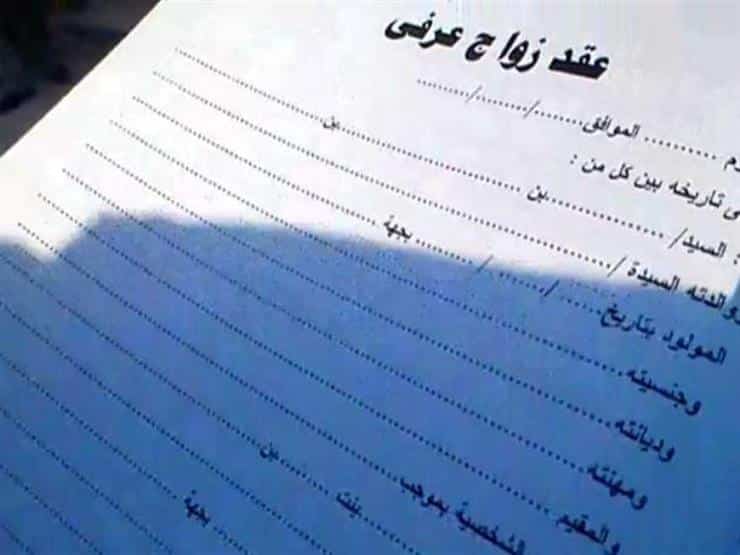 عقد زواج عرفى
.......... الموافق ......../......../........
تاريخه بين كل من :
: السيد/ .................... بن .................... بن ....................
والدته السيدة / ....................
المولود بتاريخ ....../....../...... بجهة ....................
وجنسيته ....................
وديانته ....................
ومهنته ....................
والمقيم ....................
الشخصية بموجب ....................
بنت .................... بن ....................
بجهة ....................